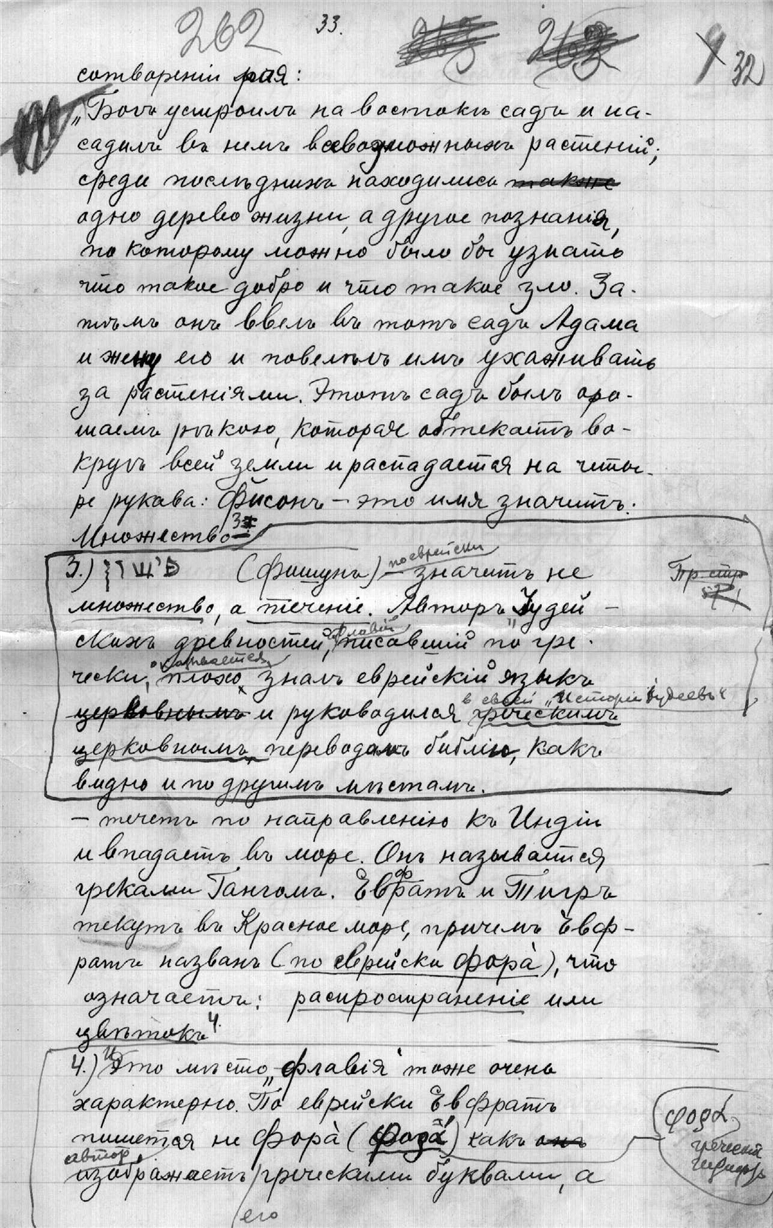 262 33. 263 263 9 32
сотворенiи рая:
„Богъ устроилъ на востокѣ садъ и на-
садилъ въ немъ всевозможныхъ растенiй;
среди послѣднихъ находились также
одно дерево жизни, а другое познанiя,
по которому можно было бы узнать
что такое добро и что такое зло. За-
тѣмъ онъ ввелъ въ тотъ садъ Адама
и жену его и повелѣлъ имъ ухаживать
за растенiями. Этотъ садъ былъ оро-
шаемъ рѣкою, которая обтекаетъ во-
кругъ всей земли и распадается на четы-
ре рукава: Фисонъ — это имя значитъ:
Множество 3
по еврейски
3.) פישון (Фишунъ) — значитъ не
Пр. стр
множество, а теченiе. Авторъ „Iудей-
Флавiй
скихъ древностей, писавшiй по гре-
оказывается
чески, плохо зналъ еврейскiй языкъ
в своей „Исторiи Iудеевъ"
церковнымъ и руководился греческимъ
церковнымъ переводомъ библiи, какъ
видно и по другимъ мѣстамъ.
— течетъ по направленiю къ Индiи
и впадаетъ въ море. Онъ называется
греками Гангомъ. Евфратъ и Тигръ
текутъ въ Красное море, причемъ Евф-
ратъ названъ (по еврейски форà), что
означаетъ: распространенiе или
цвѣтокъ 4.
4.) Это мѣсто „Флавiя" тоже очень
характерно. По еврейски Евфратъ
φορά
пишется не Форà (φορά) какъ онъ
греческiй
автор
изображаетъ греческими буквами, а
его